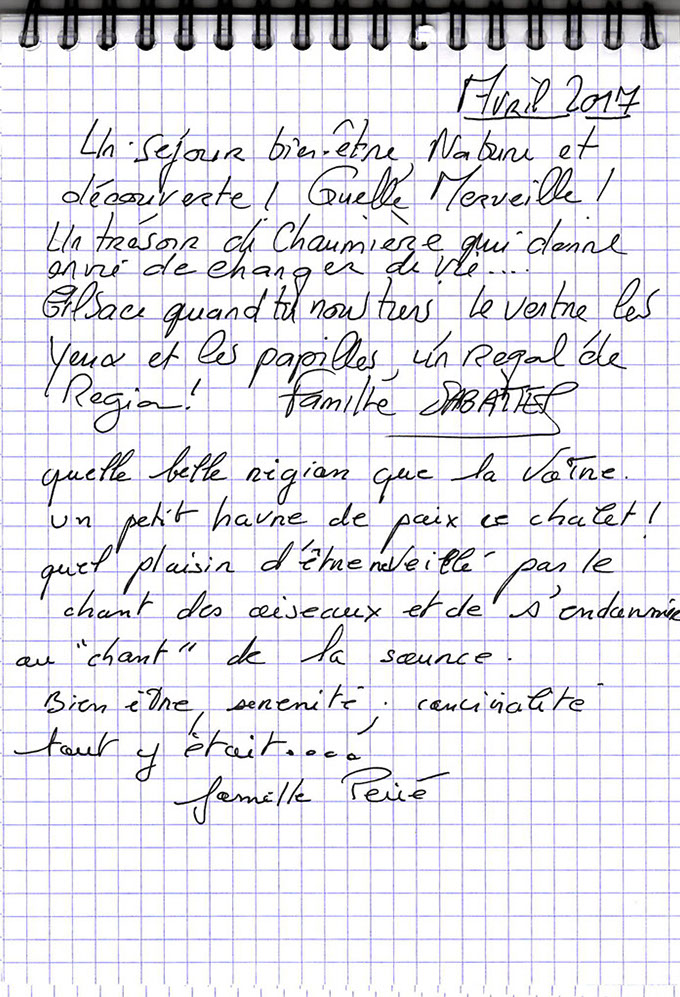 Avril 2017
Un séjour bien-être, Nature et
découverte ! Quelle Merveille !
Un trésor de Chaumière qui donne
envie de changer de vie....
Alsace quand tu nous tiens le ventre les
yeux et les papilles, un Regal de
Region ! Famille SABATIER
quelle belle région que la vôtre.
un petit havre de paix ce chalet !
quel plaisir d'être réveillé par le
chant des oiseaux et de s'endormir
au "chant" de la source.
Bien être, serenité, convivialité
tout y était....
famille